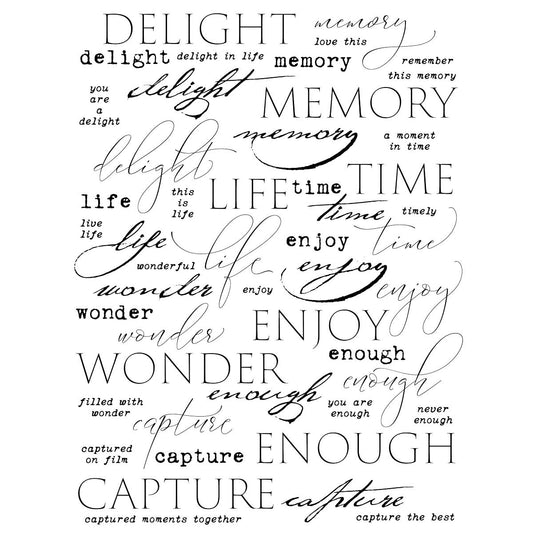 DELIGHT
memory
love this
delight
delight in life
memory
remember
this memory
you
are
a
delight
delight
MEMORY
memory
a moment
in time
delight
life
this
is
life
LIFE
time
TIME
time
timely
live
life
life
wonderful
life
enjoy
time
enjoy
wonder
enjoy
enjoy
wonder
wonder
ENJOY
enough
WONDER
enough
enough
filled with
wonder
you are
enough
never
enough
capture
captured
on film
capture
ENOUGH
CAPTURE
capture
captured moments together
capture the best